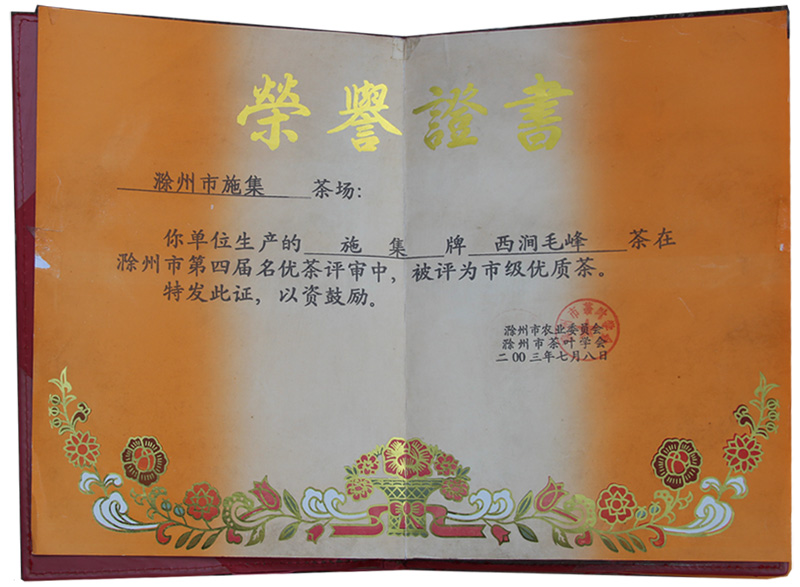 榮譽證書
滁州市施集 茶场：
你单位生产的 施 集 牌 西涧毛峰 茶在
滁州市第四届名优茶评审中，被评为市级优质茶。
特发此证，以资鼓励。
滁州市农业委员会
滁州市茶叶学会
二00三年七月八日